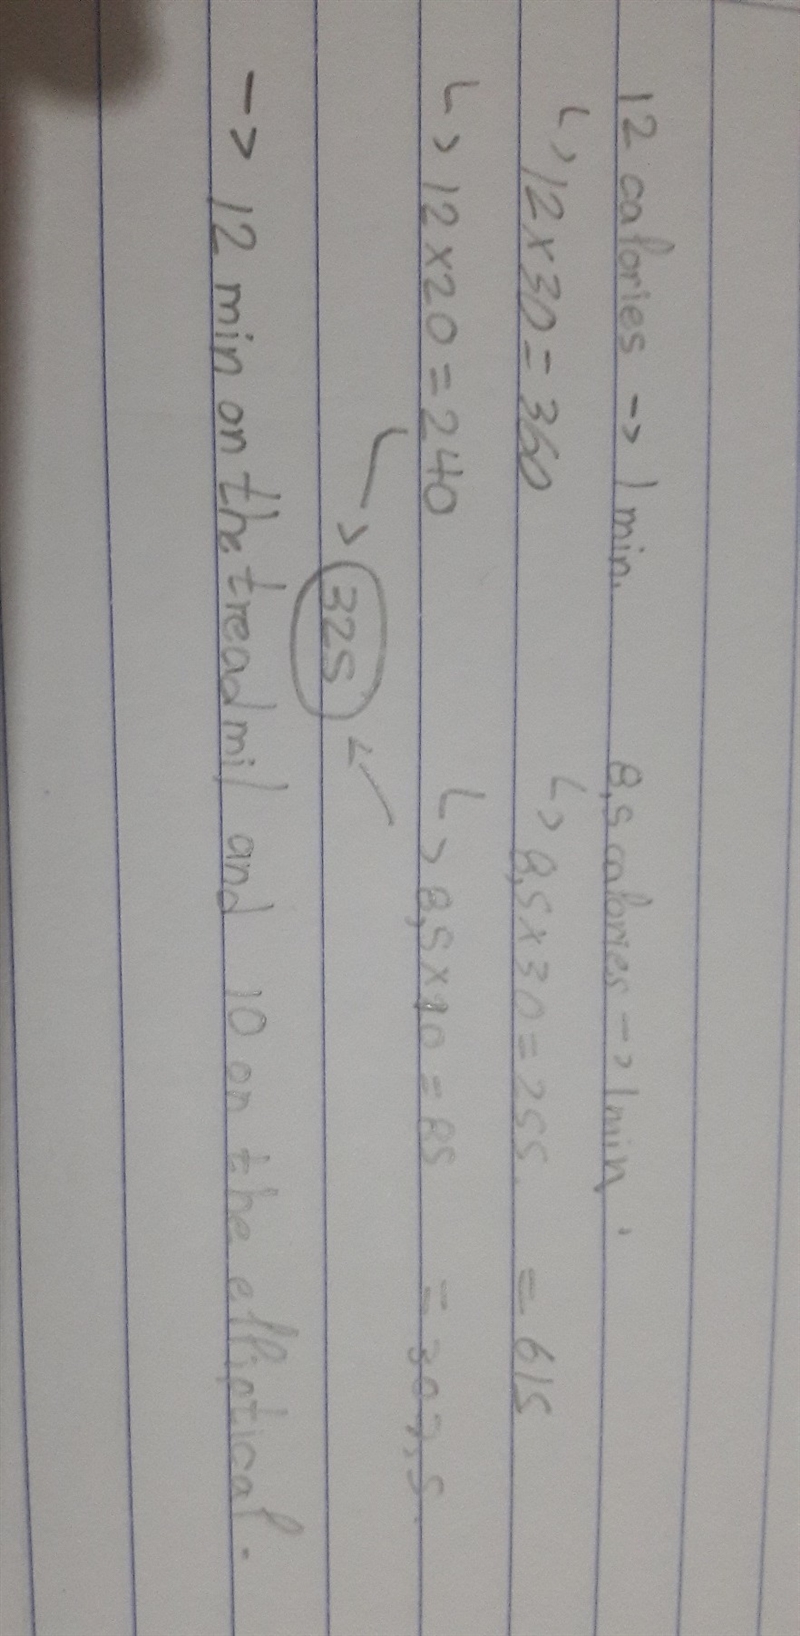 12 calories -> 1 min. 8,5 calories -> 1 min.
↳ 12 x 30 = 360 ↳ 8,5 x 30 = 255. = 615
↳ 12 x 20 = 240 ↳ 8,5 x 10 = 85 = 307,5.
325
-> 12 min on the treadmil and 10 on the elliptical.